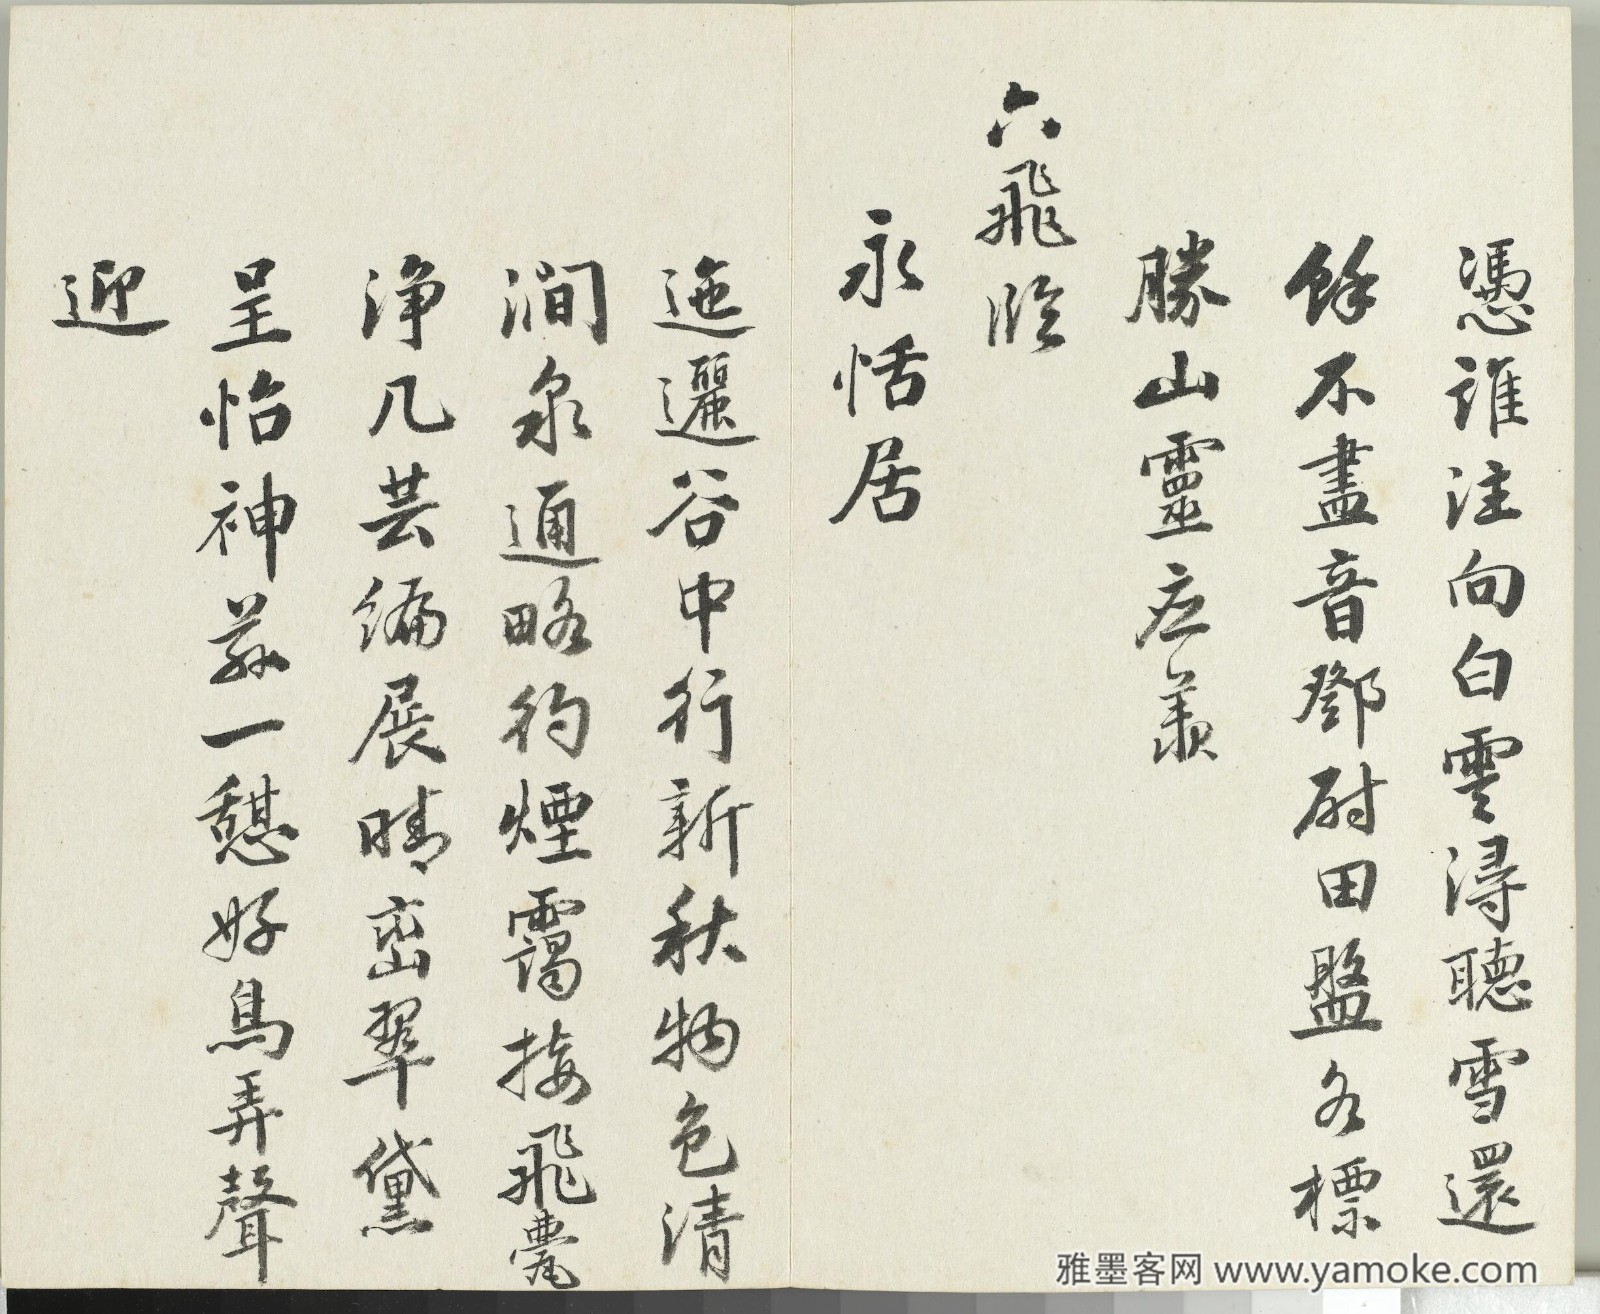 憑誰注向白雲潯聽雪還
餘不盡音鄧尉田盤各標
勝山靈應羨
六飛臨
永恬居
迤邐谷中行新秋物色清
澗泉通略彴煙靄接飛甍
淨几芸編展晴巒翠黛
呈怡神茲一憩好鳥弄聲
迎
雅墨客网 www.yamoke.com